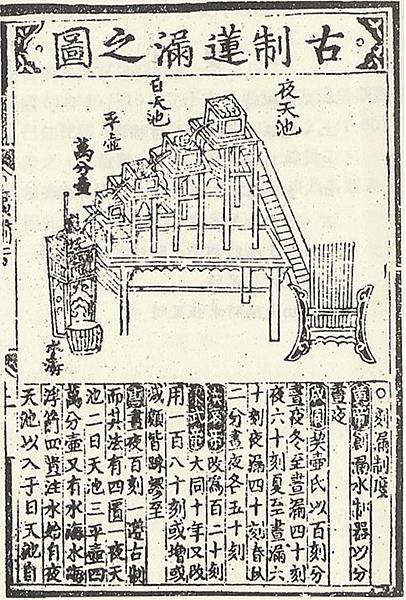 古制蓮漏之圖
夜天池
日天池
平壺
萬分壺
水海
○刻漏制度
黃帝創漏水制器以分
晝夜
成周挈壺氏以百刻分
晝夜冬至晝漏四十刻
夜六十刻夏至晝漏六
十刻夜漏四十刻春秋
二分晝夜各五十刻
漢哀帝改為百二十刻
梁武帝大同十年又改
用一百八十刻或增或
減類皆疎謬至
唐晝夜百刻一遵古制
而其法有四匱一夜天
池二日天池三平壺四
萬分壺又有水海水海
浮箭四匱注水始自夜
天池以入于日天池自